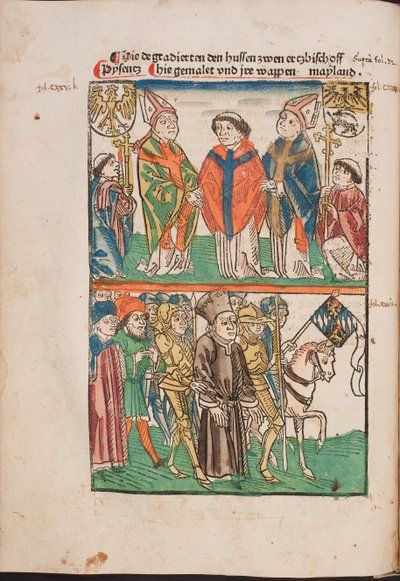 Die degradierten den hussen zwen ertzbischoff
Pysentz hie gemalet vnd jre wappen mayland.
Suprà fol. 32
fol. CXXV. b.